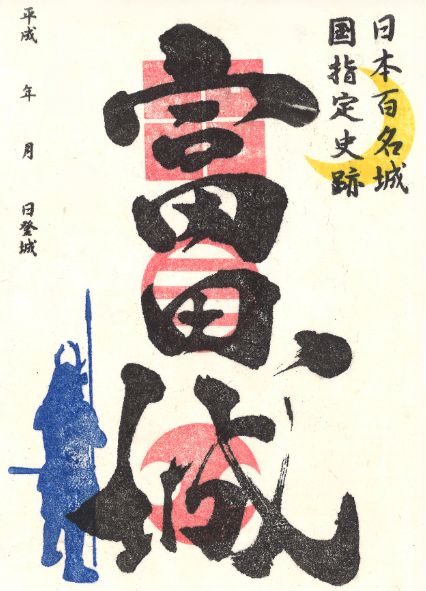 日本百名城
国指定史跡
富田城
平成　年　月　日登城